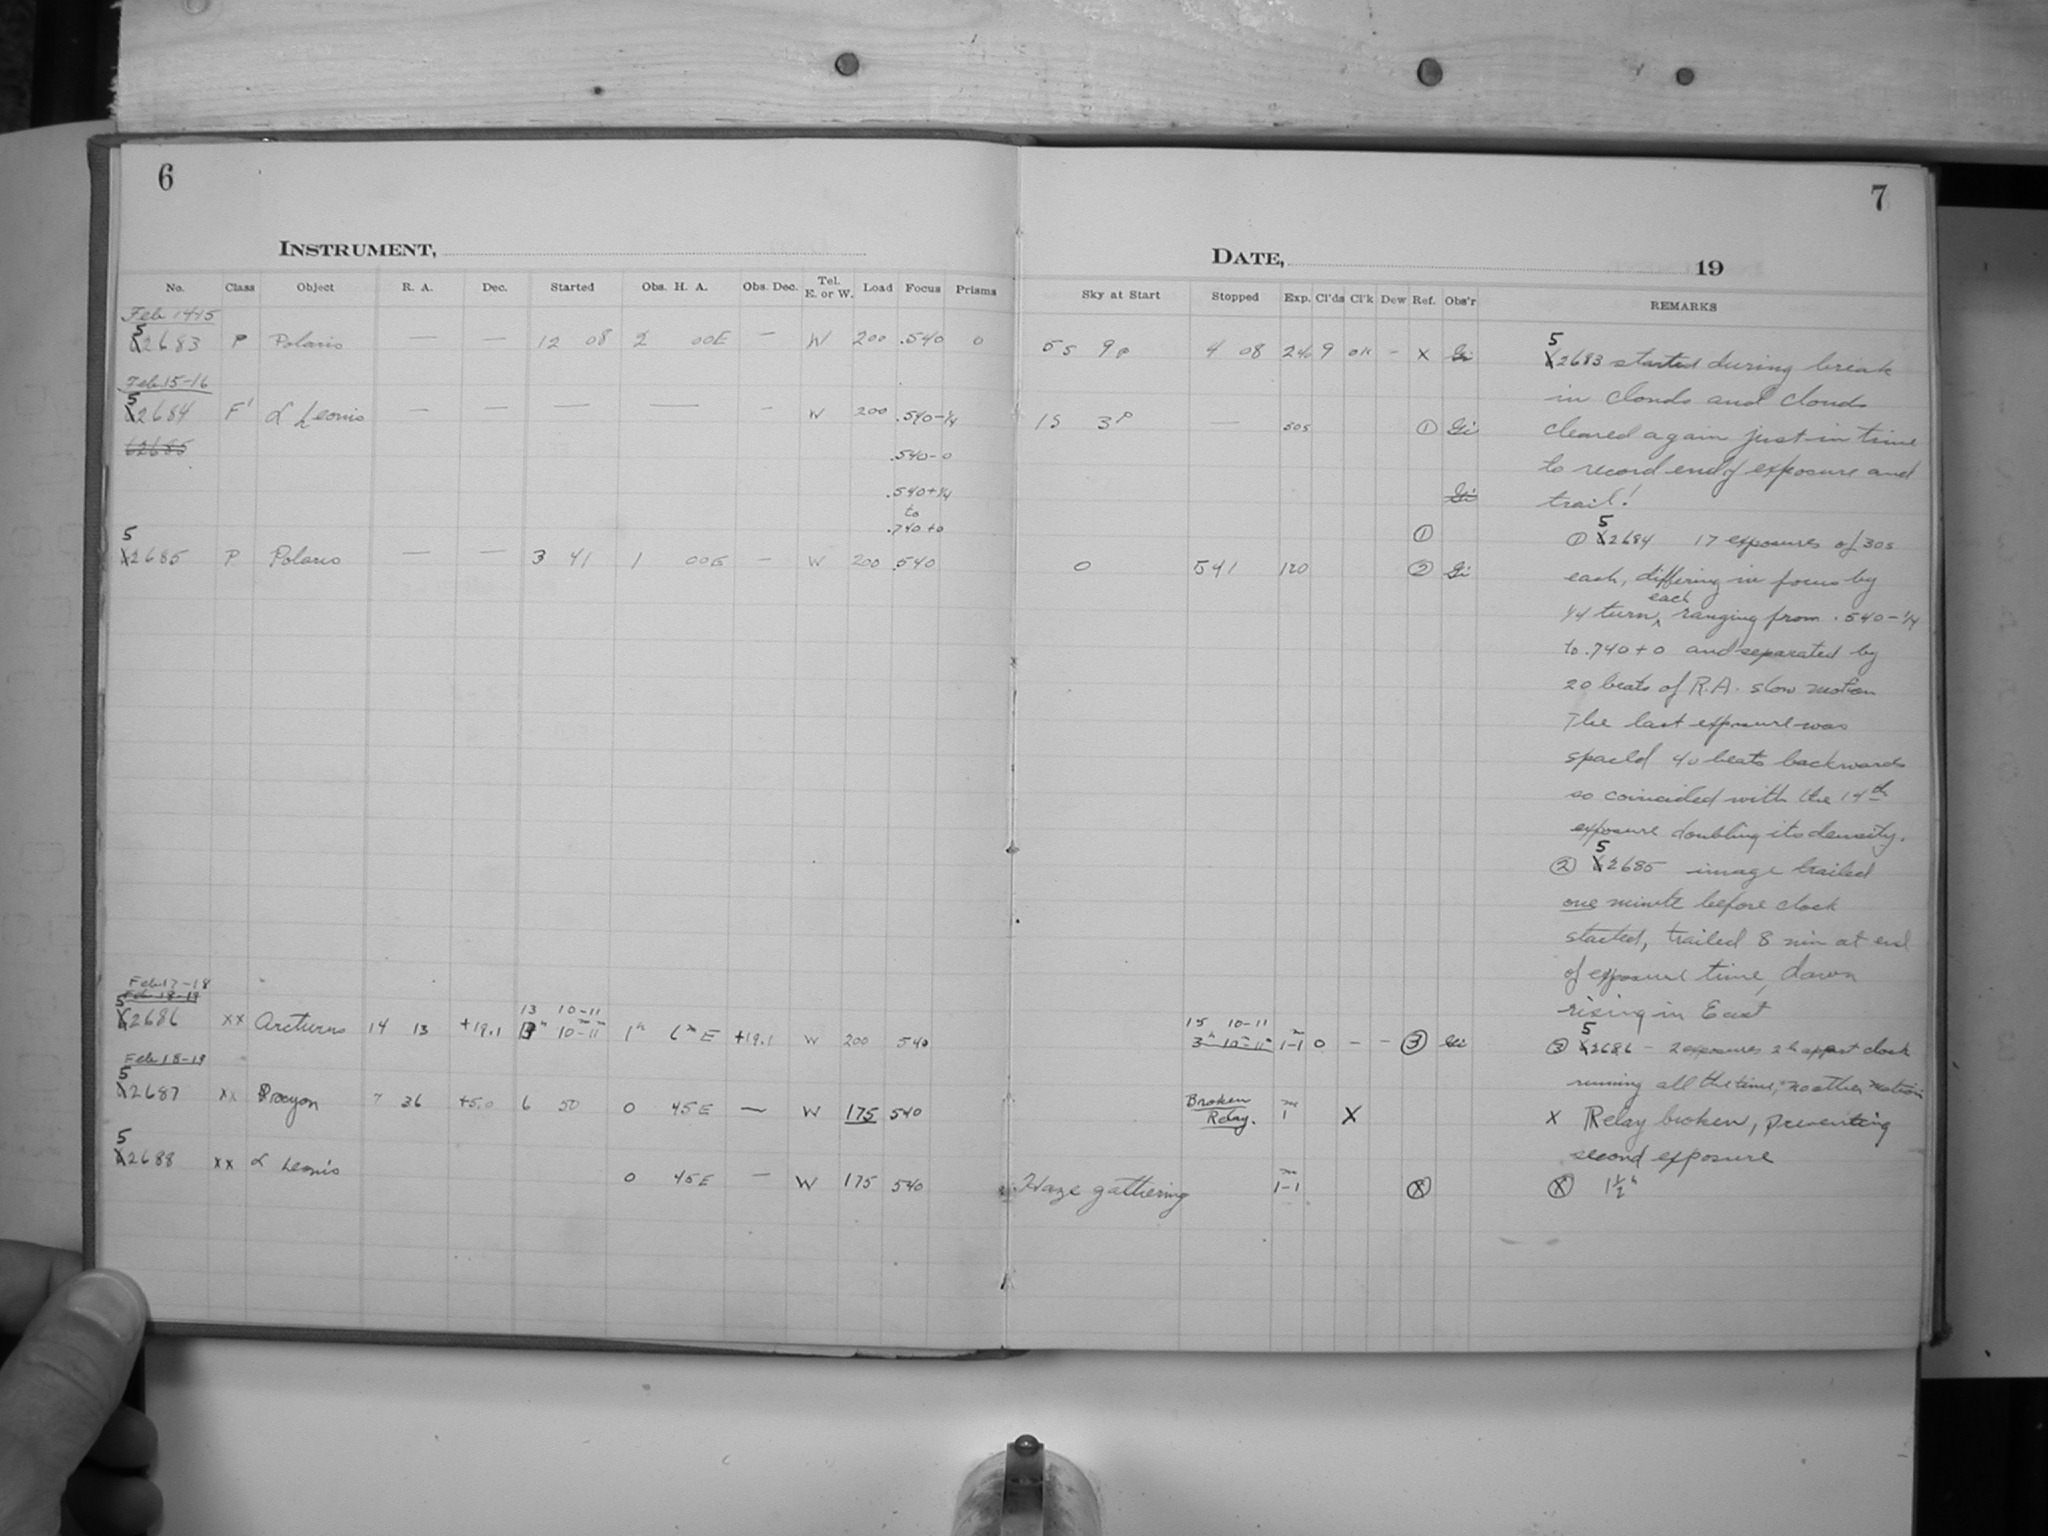 6
7
INSTRUMENT,
DATE, 19
No. Class Object R. A. Dec. Started Obs. H. A. Obs. Dec. Tel. E. or W. Load Focus Prisms Sky at Start Stopped Exp. Cl'ds Cl'k Dew Ref. Obs'r REMARKS
Feb 14-15
52683 P Polaris — — 12 08 2 00E — W 200 .540 0 5S 9P 4 08 240 9 OK - X Gi
52683 started during break
in clouds and clouds
cleared again just in time
to record end of exposure and
trail!
Feb 15-16
52684 F' α Leonis — — — — - W 200 .540-¼ 1S 3P — 30s ① Gi
62685 .540-0
.540+¼ Gi
to
.740+0 ①
① 52684 17 exposures of 30s
52685 P Polaris — — 3 41 1 00E — W 200 .540 0 541 120 ② Gi
each, differing in focus by
each
¼ turn, ranging from .540-¼
to .740+0 and separated by
20 beats of R.A. slow motion
The last exposure was
spaced 40 beats backwards
so coincided with the 14th
exposure doubling its density.
② 52685 image trailed
one minute before clock
started, trailed 8 min at end
of exposure time, dawn
rising in East
Feb 17-18
Feb 18-19
13 10-11 15 10-11
52686 xx Arcturus 14 13 +19.1 10-11 1h 6m E +19.1 W 200 540 3h 10-11m 1-1m 0 - - ③ Gi
③ 52686 - 2 exposures 2h apart clock
running all the time, no other motion
Feb 18-19
52687 xx Procyon 7 36 +5.0 6 50 0 45E — W 175 540 Broken Relay. 1m X
X Relay broken, preventing
second exposure
52688 xx α Leonis 0 45E — W 175 540 Haze gathering 1-1m Ⓧ
Ⓧ 1½h